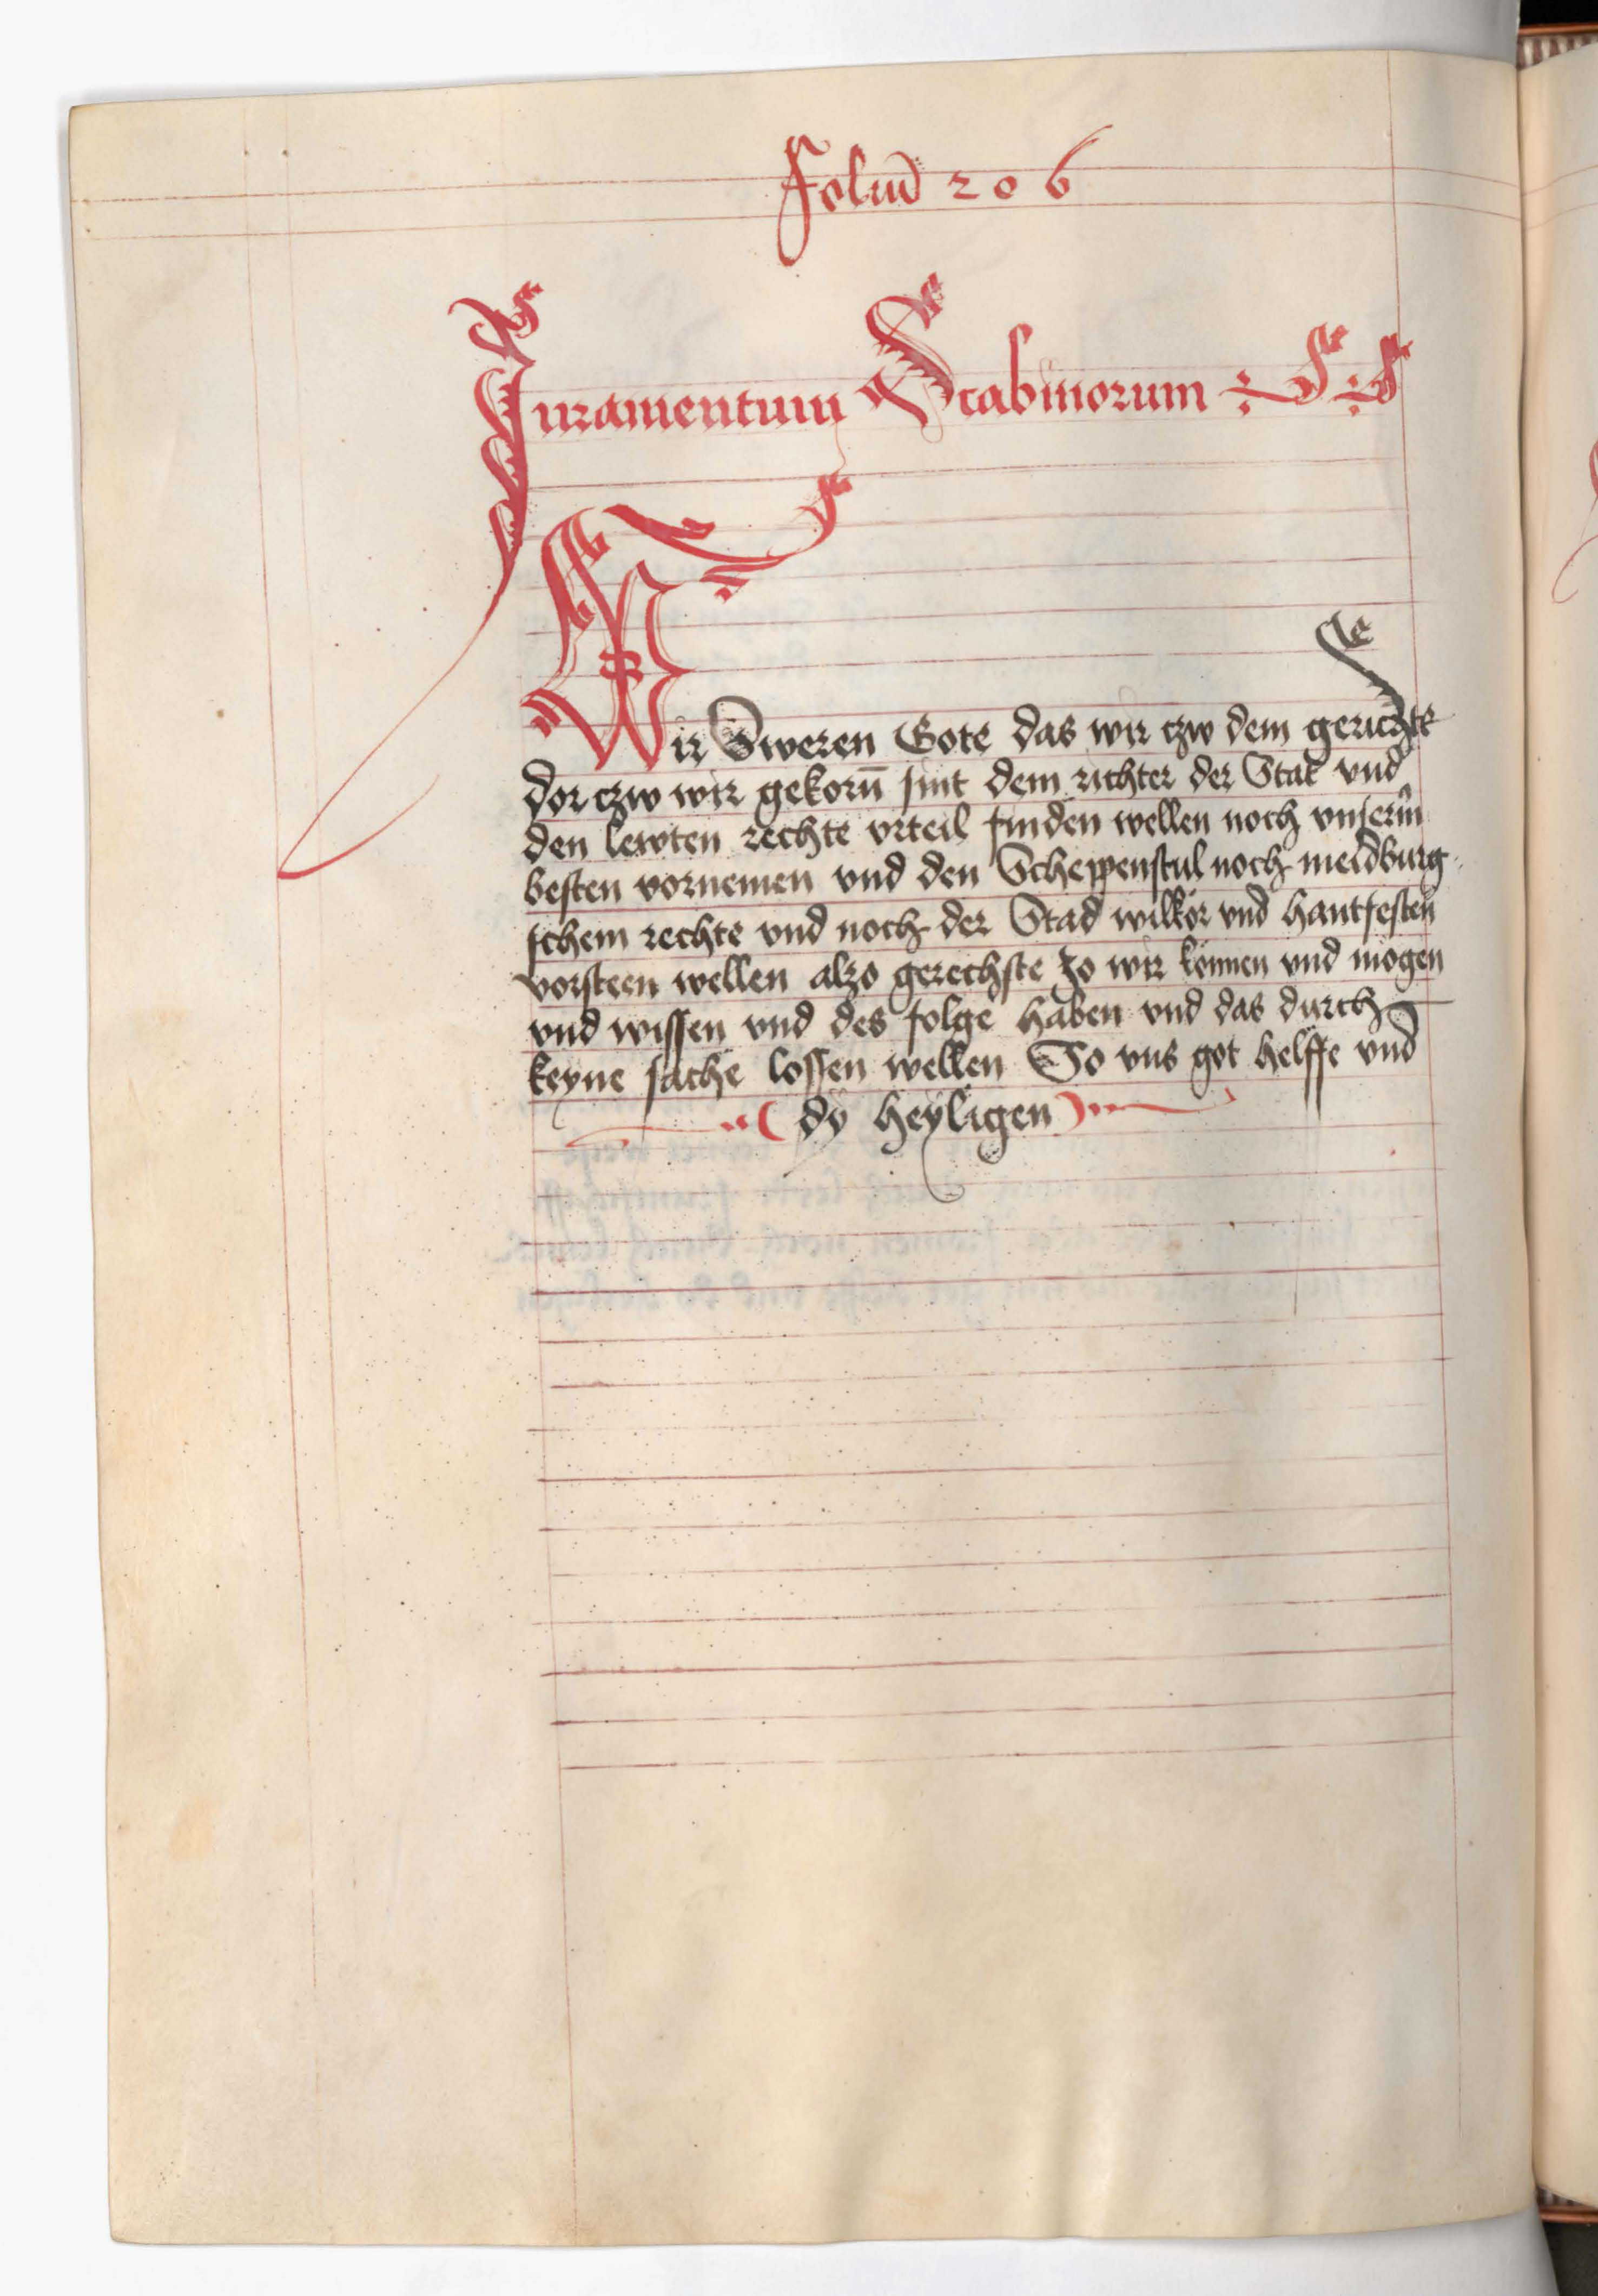 Foliū 206
Juramentum Scabinorum
Wir Sweren Gote das wir czw dem gerichte
dor czw wir gekorn̄ sint dem richter der Stat vnd
den lewten rechte vrteil finden wellen noch vnserm̄
besten vornemen vnd den Scheppenstul noch meidburg
schem rechte vnd noch der Stad wilkör vnd hantfesten
vorsteen wellen alzo gerechste zo wir können vnd mögen
vnd wissen vnd des folge haben vnd das durch
keyne sache lossen wellen So vns got helffe vnd
dÿ heÿligen